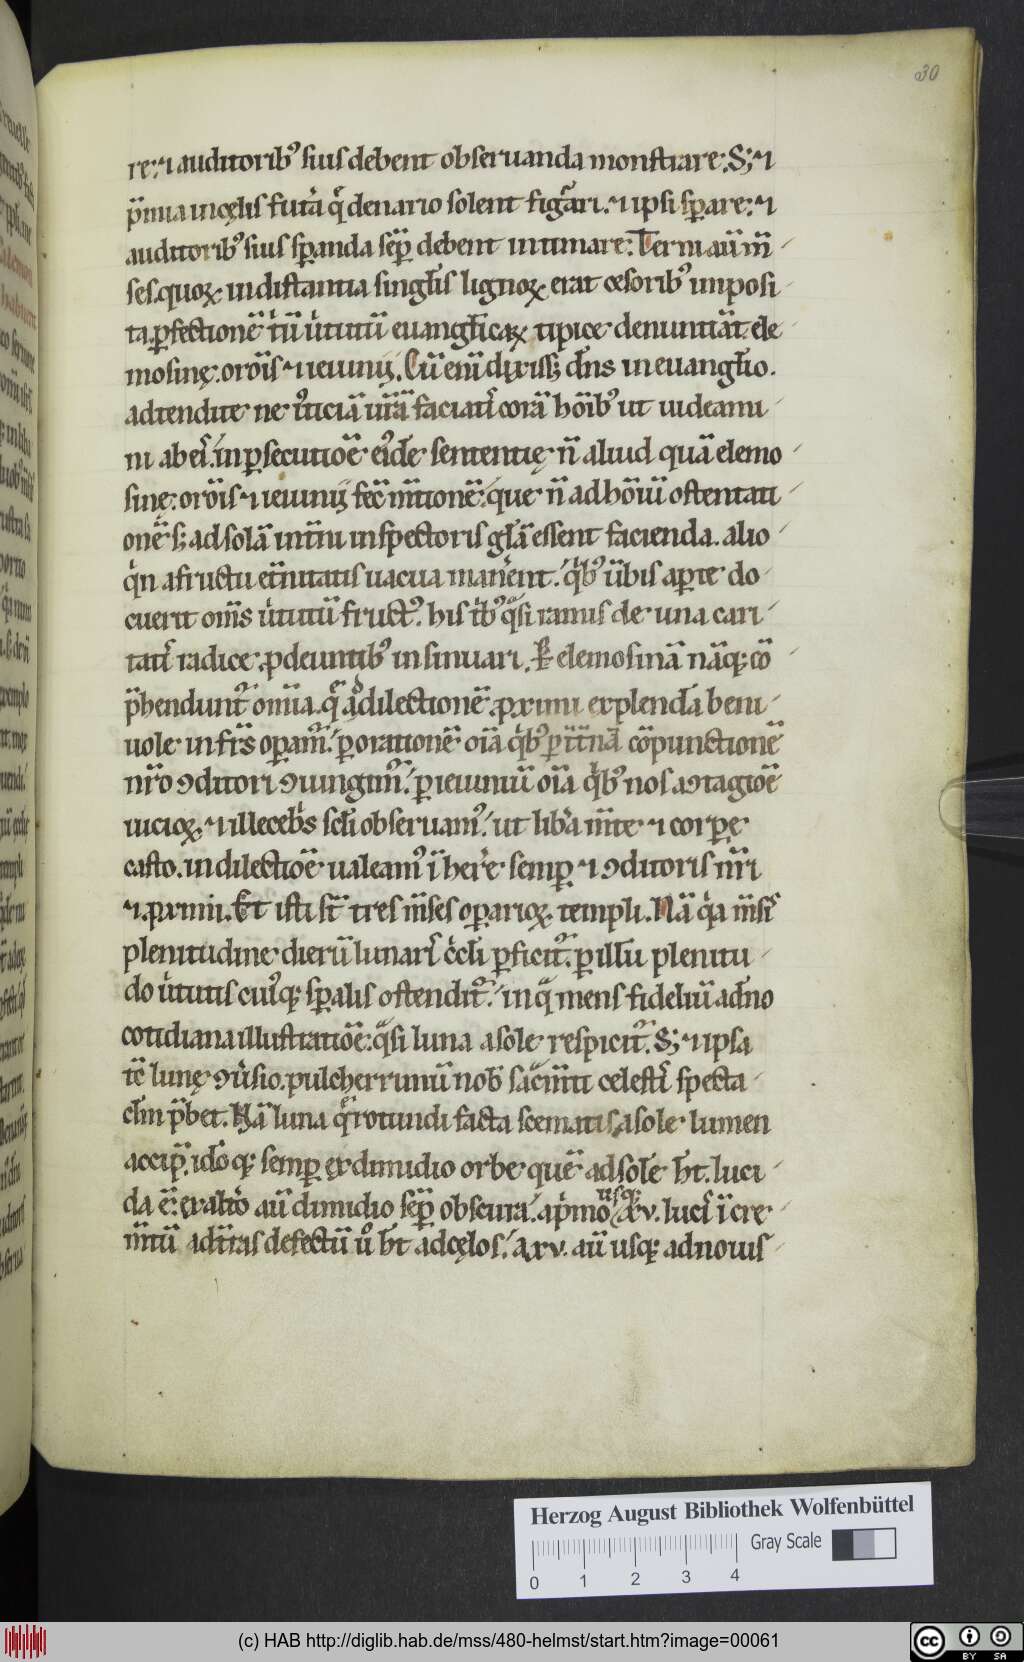 30
re: ⁊ auditoribꝰ suis debent obseruanda monstrare. S; ⁊
p̄mia in cęlis futa̍ q̍ denario solent figᷓari. ⁊ ipsi sꝑare: ⁊
auditoribꝰ suis sꝑanda seꝑ debent intimare. Terni aū m̄
ses. quoꝝ in distantia singl̄is lignoꝝ erat cesoribꝰ imposi
ta. ꝑfectionē t̍ū u̍tutū euangl̄icaꝝ tipice denuntiāt. ele
mosinę. orōis ⁊ ieiunij. Cū eni̅ dixiss; dn̄s in euangl̄io.
adtendite ne iꝰticiā ur̄ā faciatis corā hōibꝰ ut uideami
ni ab eis. in ꝑsecutiōe eiꝰdē sententię n̄ aliud quā elemo
sinę. orōis ⁊ ieiunij fec̄ m̄tionē. que n̄ ad hōiū ostentati
onē s; ad solā int̄ni inspectoris gl̄ā essent facienda. alio
q̍n a fructu et̄nitatis uacua manērent. q̍bꝰ ūbis aꝑte do
cuerit om̄s u̍tutū fructꝰ. his t̍bꝰ qᷓsi ramis de una cari
tatis radice ꝓdeuntibꝰ insinuari. ꝑ elemosinā nāq; cō
p̄hendunt᷑ om̄ia. q̄ ad dilectionē ꝓximi explenda beni
uole in fr̄s oꝑam᷑. ꝑ orationē oīa q̍bꝰ ꝑ int̄nā cōpunctionē
nr̄o ꝯditori ꝯiungim᷑. ꝑ ieiuniū oīa q̍bꝰ nos a ꝯtagiōe
uicioꝝ ⁊ illecebris scl̄i obseruamꝰ. ut libā m̄te ⁊ corꝑe
casto. in dilectiōe ualeamꝰ īherēre semꝑ ⁊ ꝯditoris nr̄i
⁊ ꝓximi. Et isti st̄ tres m̄ses oꝑarioꝝ templi. Nā q̍a m̄sis
plenitudine dierū lunaris c̍cl̄i ꝑficit᷑. ꝑ illū plenitu
do u̍tutis cuiꝰq; sꝑalis ostendit᷑. in qᷓ mens fideliū a dn̄o
cotidiana illustratiōe. qᷓsi luna a sole respicit᷑. S; ⁊ ipsa
tē lunę ꝯu̍sio. pulcherrimū nob̄ sac̄m̄ti celestis specta
cl̄m p̄bet. Nā luna qᷓ rotundi facta scematis. a sole lumen
accip̄. ido̅ q; semꝑ ex dimidio orbe quē ad solē h̄t. luci
da ē. ex alio aū dimidio seꝑ obscura. a p̍mo usq; a xv. lucis īcre
m̄tū ad tr̄as defectū u̍o h̄t ad cęlos. a xv. aū usq; ad nouis
Herzog August Bibliothek Wolfenbüttel
Gray Scale
0 1 2 3 4
(c) HAB http://diglib.hab.de/mss/480-helmst/start.htm?image=00061
cc BY SA